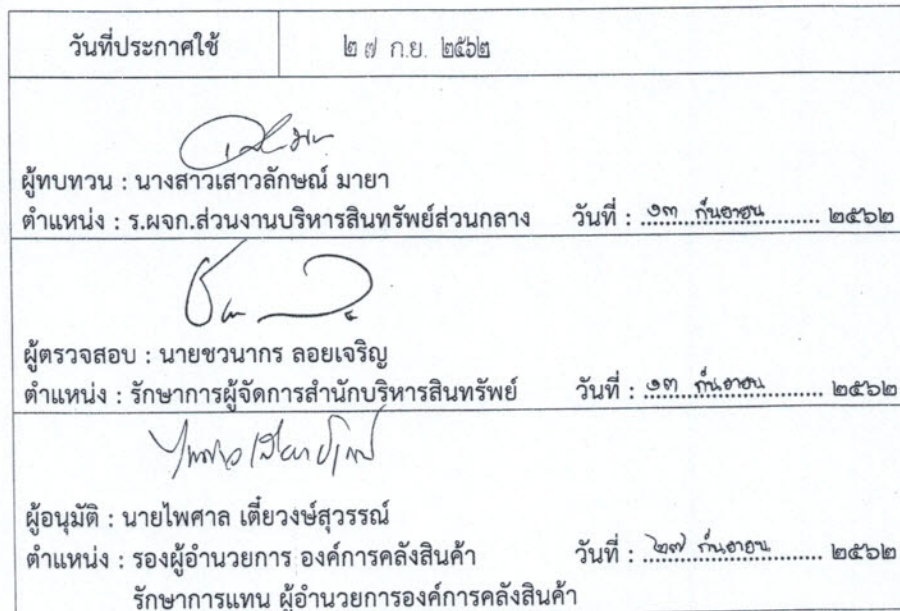 วันที่ประกาศใช้ ๒๗ ก.ย. ๒๕๖๒
ผู้ทบทวน : นางสาวเสาวลักษณ์ มายา
ตำแหน่ง : ร.ผจก.ส่วนงานบริหารสินทรัพย์ส่วนกลาง วันที่ : ๑๓ กันยายน ๒๕๖๒
ผู้ตรวจสอบ : นายชวนากร ลอยเจริญ
ตำแหน่ง : รักษาการผู้จัดการสำนักบริหารสินทรัพย์ วันที่ : ๑๓ กันยายน ๒๕๖๒
ผู้อนุมัติ : นายไพศาล เตี๋ยวงษ์สุวรรณ์
ตำแหน่ง : รองผู้อำนวยการ องค์การคลังสินค้า วันที่ : ๒๗ กันยายน ๒๕๖๒
รักษาการแทน ผู้อำนวยการองค์การคลังสินค้า